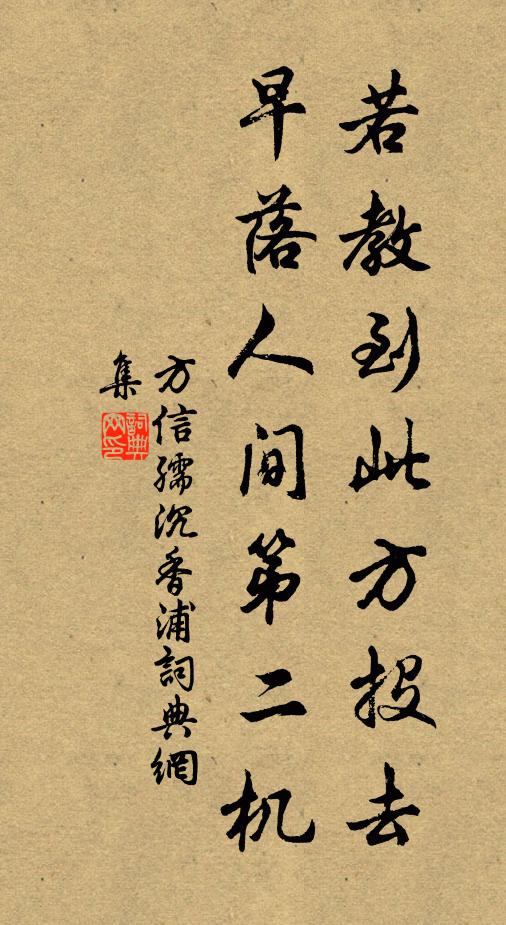 若教到此方投去
早落人间第二机
方信孺沉香浦詞典網
集
詞典网印